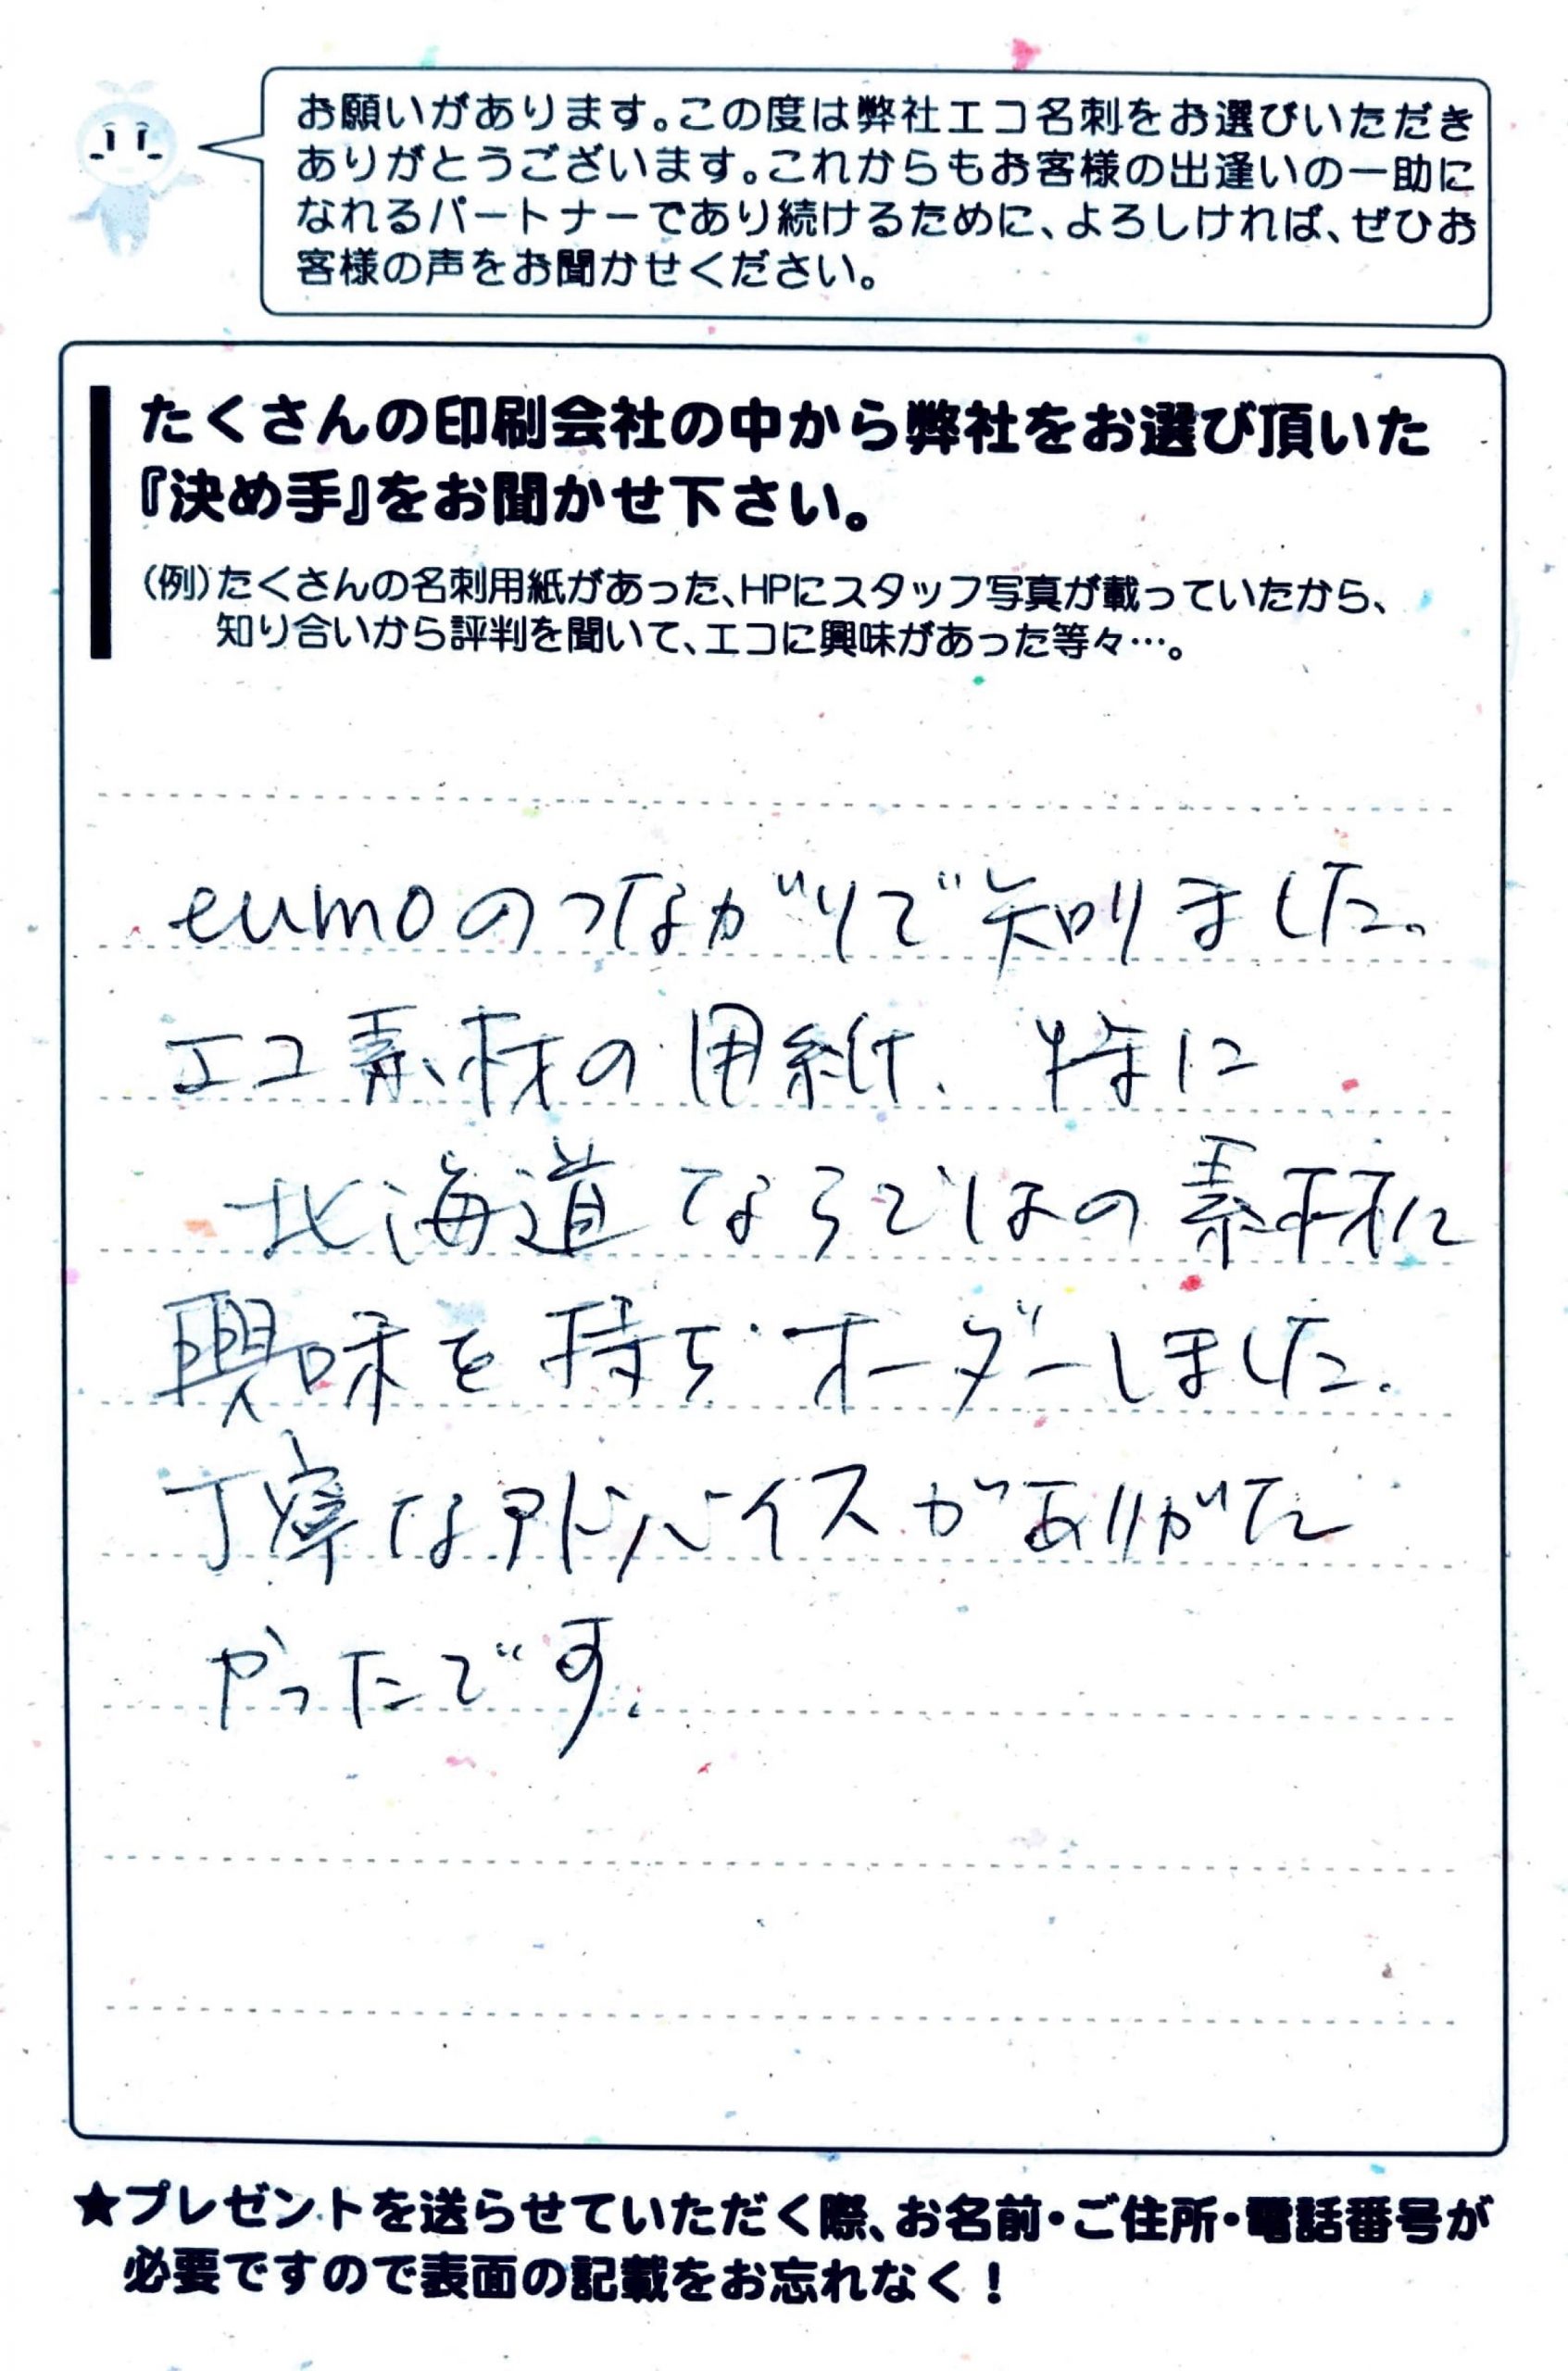 お願いがあります。この度は弊社エコ名刺をお選びいただき
ありがとうございます。これからもお客様の出逢いの一助に
なれるパートナーであり続けるために、よろしければ、ぜひお
客様の声をお聞かせください。
たくさんの印刷会社の中から弊社をお選び頂いた
『決め手』をお聞かせ下さい。
(例)たくさんの名刺用紙があった、HPにスタッフ写真が載っていたから、
知り合いから評判を聞いて、エコに興味があった等々…。
eumoのつながりで知りました。
エコ素材の用紙、特に
北海道ならではの素材に
興味を持ち、オーダーしました。
丁寧なアドバイスがありがた
かったです。
★プレゼントを送らせていただく際、お名前・ご住所・電話番号が
必要ですので表面の記載をお忘れなく!